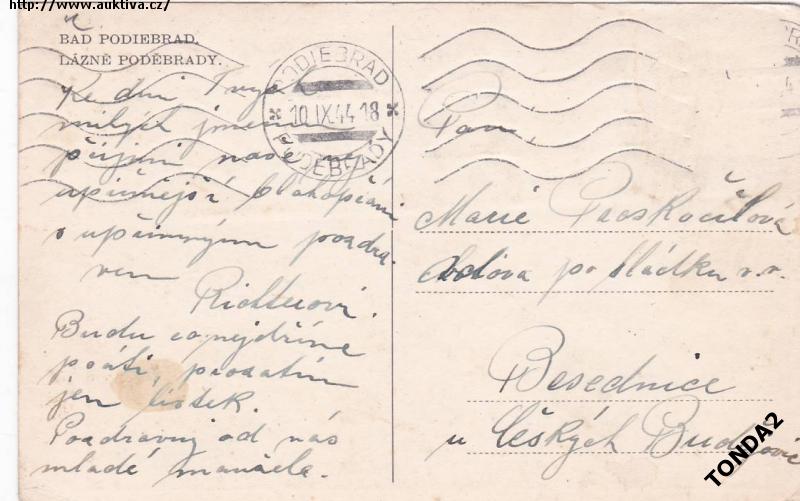 http://www.auktiva.cz/
BAD PODIEBRAD.
LÁZNĚ PODĚBRADY.
PODIEBRAD
10.IX.44 18
PODĚBRADY
Ke dni Tvých
milých jmenin
přijmi naše
upřímnější blahopřání
s upřímným pozdra
vem
Richterovi.
Budu co nejdříve
psáti, prozatím
jen lístek.
Pozdravuj od nás
mladé manžele.
Paní,
Marie Proskočilová
vdova po sládku v. v.
Besednice
u Českých Budějovic
TONDA2